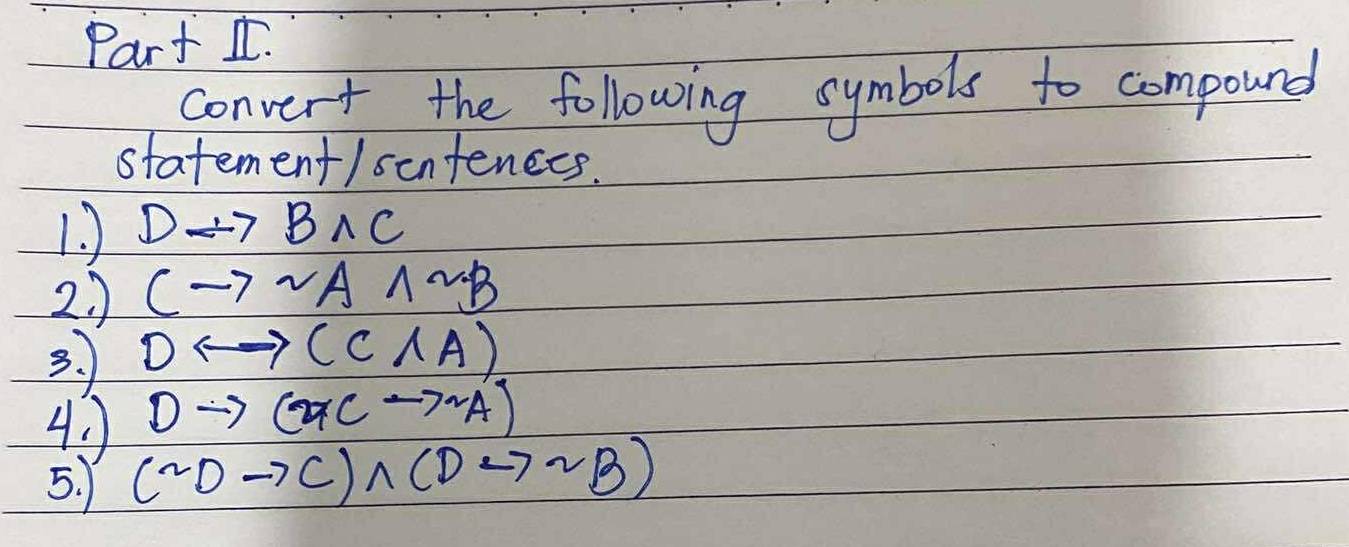 Part II.
Convert the following symbols to compound
statement/sentences.
1.) D → B ∧ C
2.) C → ~A ∧ ~B
3.) D ↔ (C ∧ A)
4.) D → (~C → ~A)
5.) (~D → C) ∧ (D ↔ ~B)